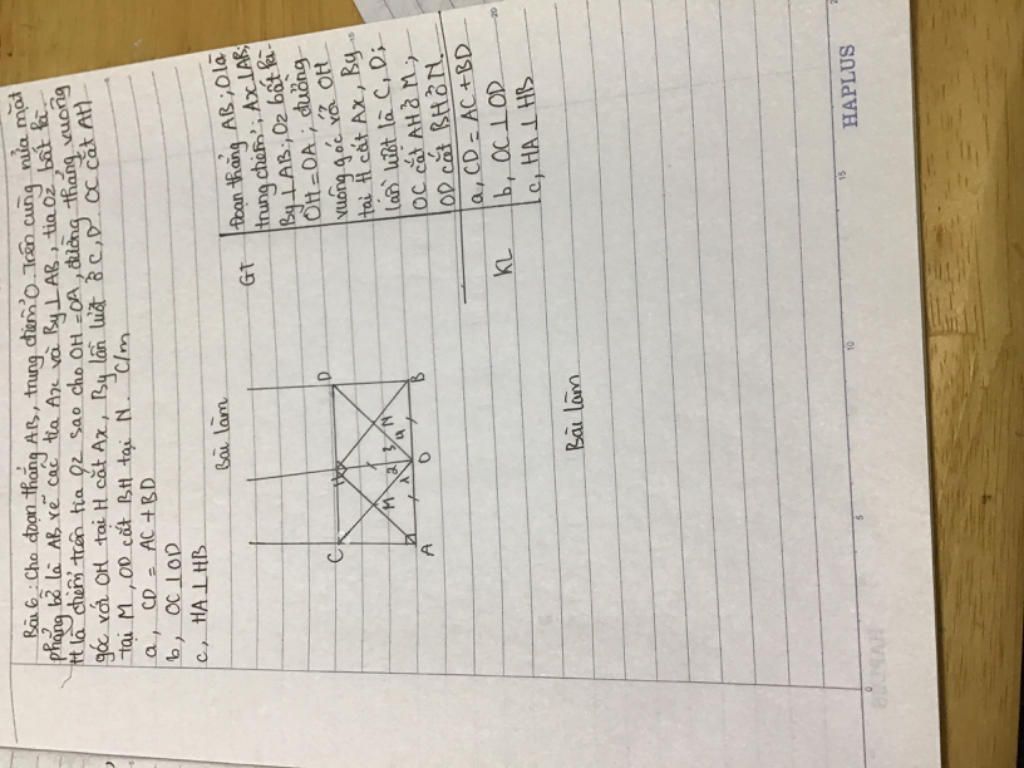 Bài 6: Cho đoạn thẳng AB, trung điểm O. Trên cùng nửa mặt
phẳng bờ là AB vẽ các tia Ax và By ⊥ AB, tia Oz bất kì.
H là điểm trên tia Oz sao cho OH = OA, đường thẳng vuông
góc với OH tại H cắt Ax, By lần lượt ở C, D. OC cắt AH
tại M, OD cắt BH tại N. C/m
a, CD = AC + BD
b, OC ⊥ OD
c, HA ⊥ HB
Bài làm
C
H
D
M
N
1
2
3
4
A
O
B
GT
Đoạn thẳng AB; O là
trung điểm; Ax ⊥ AB;
By ⊥ AB; Oz bất kì
OH = OA; đường
vuông góc với OH
tại H cắt Ax, By
lần lượt là C, D;
OC cắt AH ở M;
OD cắt BH ở N.
KL
a, CD = AC + BD
b, OC ⊥ OD
c, HA ⊥ HB
Bài làm
0
5
10
15
20
HAPLUS